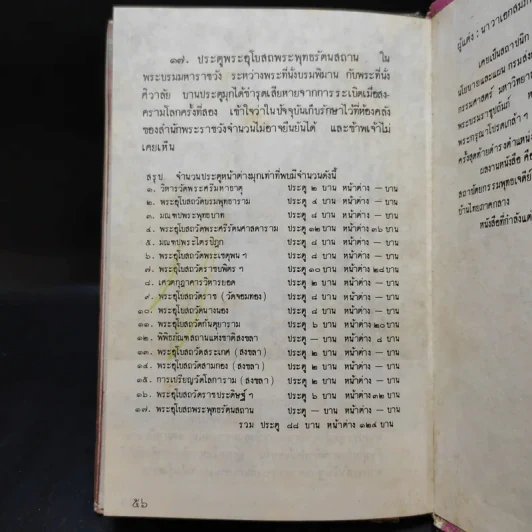 ๑๗. ประตูพระอุโบสถพระพุทธรัตนสถาน ใน
พระบรมมหาราชวัง ระหว่างพระที่นั่งบรมพิมาน กับพระที่นั่ง
ศิวาลัย บานประตูมุกได้ชำรุดเสียหายจากการระเบิดเมื่อสง-
ครามโลกครั้งที่สอง เข้าใจว่าในปัจจุบันเก็บรักษาไว้ที่ห้องคลัง
ของสำนักพระราชวังจำนวนไม่อาจยืนยันได้ และข้าพเจ้าไม่
เคยเห็น
สรุป จำนวนประตูหน้าต่างมุกเท่าที่พบมีจำนวนดังนี้
๑. วิหารวัดพระศรีมหาธาตุ ประตู ๒ บาน หน้าต่าง — บาน
๒. พระอุโบสถวัดบรมพุทธาราม ประตู ๔ บาน หน้าต่าง — บาน
๓. มณฑปพระพุทธบาท ประตู ๘ บาน หน้าต่าง — บาน
๔. พระอุโบสถวัดพระศรีรัตนศาสดาราม ประตู ๑๒ บาน หน้าต่าง ๓๖ บาน
๕. มณฑปพระไตรปิฎก ประตู ๘ บาน หน้าต่าง — บาน
๖. พระอุโบสถวัดพระเชตุพน ฯ ประตู ๘ บาน หน้าต่าง — บาน
๗. พระอุโบสถวัดราชบพิตร ฯ ประตู ๑๐ บาน หน้าต่าง ๒๘ บาน
๘. เศวตกุฎาคารวิหารยอด ประตู ๒ บาน หน้าต่าง — บาน
๙. พระอุโบสถวัดราช ( วัดจอมทอง) ประตู ๘ บาน หน้าต่าง — บาน
๑๐. พระอุโบสถวัดนางนอง ประตู ๘ บาน หน้าต่าง — บาน
๑๑. พระอุโบสถวัดกันตุยาราม ประตู ๖ บาน หน้าต่าง ๒๐ บาน
๑๒. พิพิธภัณฑสถานแห่งชาติสงขลา ประตู — บาน หน้าต่าง ๘ บาน
๑๓. พระอุโบสถวัดสระเกศ (สงขลา) ประตู ๒ บาน หน้าต่าง — บาน
๑๔. พระอุโบสถวัดสามกอง (สงขลา) ประตู ๒ บาน หน้าต่าง — บาน
๑๕. การเปรียญวัดโลการาม (สงขลา) ประตู ๒ บาน หน้าต่าง — บาน
๑๖. พระอุโบสถวัดราชประดิษฐ์ ฯ ประตู ๖ บาน หน้าต่าง ๓๒ บาน
๑๗. พระอุโบสถพระพุทธรัตนสถาน ประตู — บาน หน้าต่าง — บาน
รวม ประตู ๘๘ บาน หน้าต่าง ๑๒๔ บาน
๕๖
ผู้แต่ง : นาวาเอกสมภ
เคยเป็นสถาปนิก
นโยบายและแผน กรมสง
กรรมศาสตร์ มหาวิทยา
พระบรมราชูปถัมภ์
พระกรุณาโปรดเกล้า ฯ
ครั้งสุดท้ายดำรงตำแหน่ง
ผลงานหนังสือ คือ
สถาปัตยกรรมพุทธเจดีย์
บ้านไทยภาคกลาง
หนังสือที่กำลังแต่